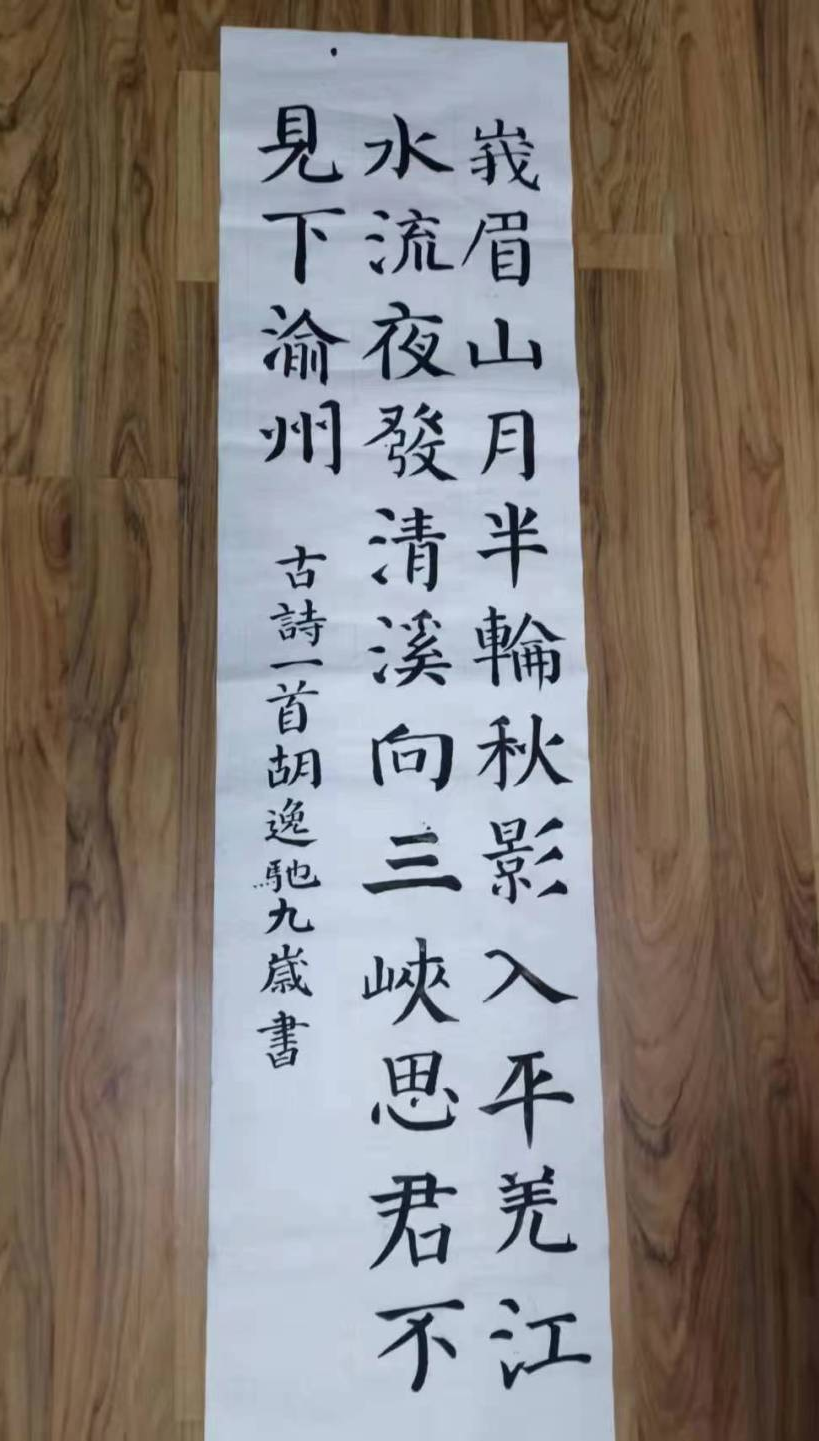 峩眉山月半輪秋影入平羌江
水流夜發清溪向三峽思君不
見下渝州
古詩一首胡逸馳九歲書